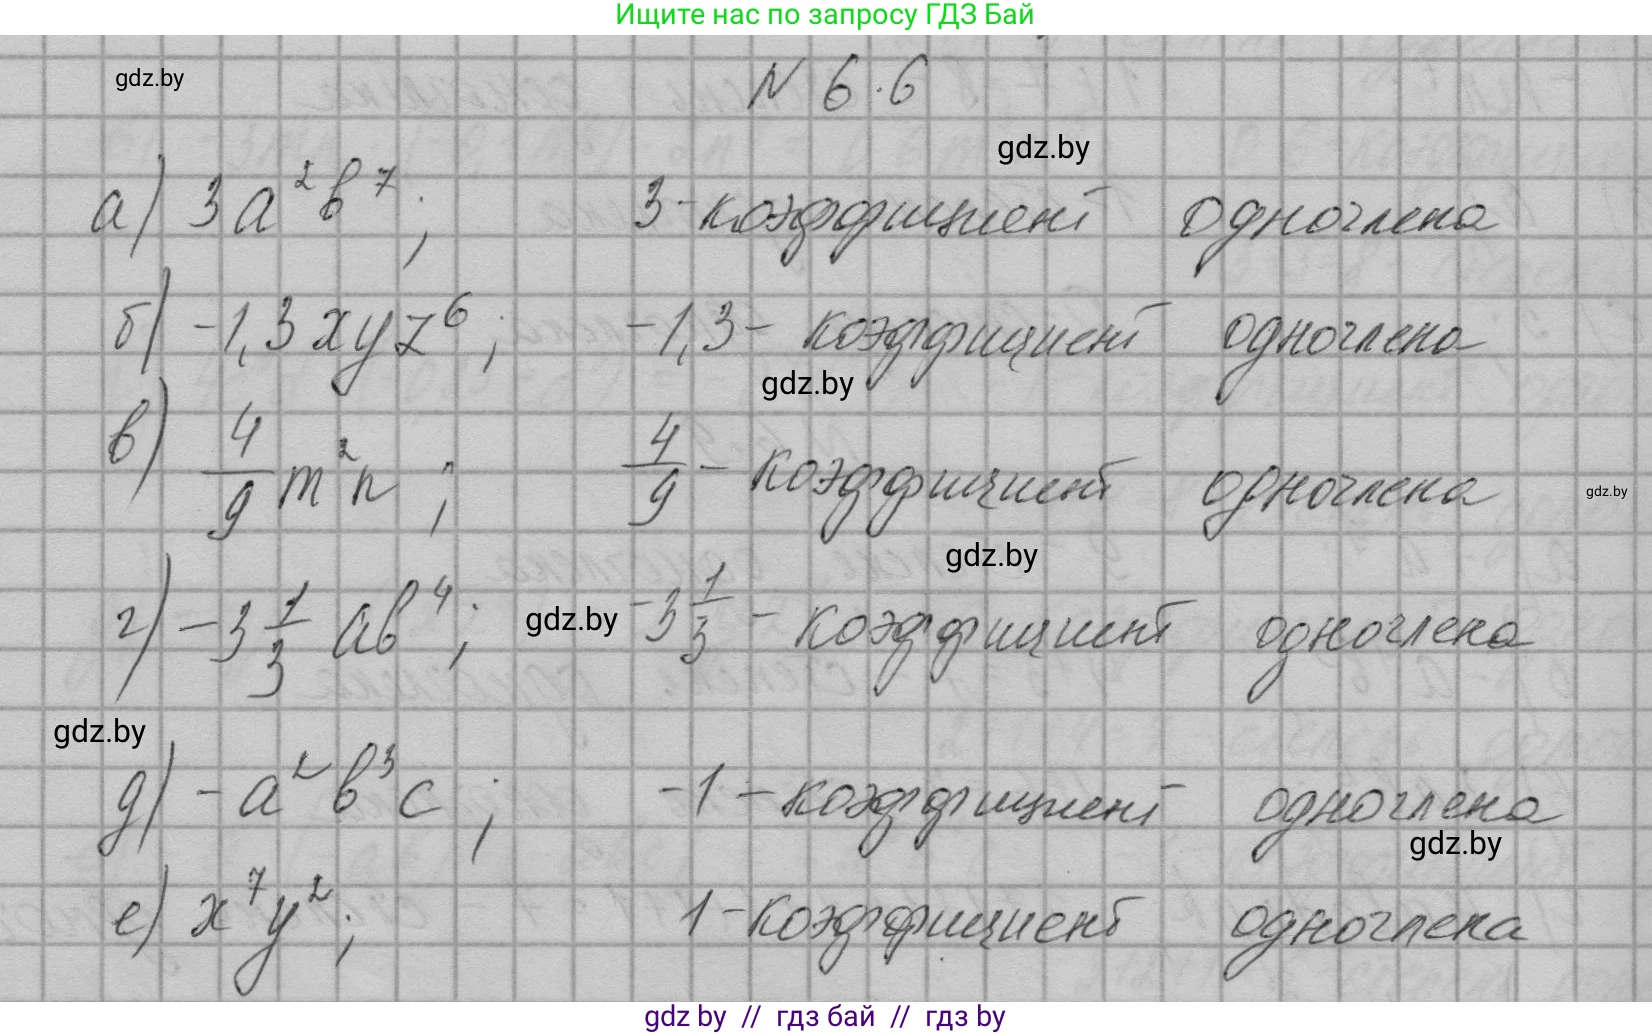 Ищите нас по запросу ГДЗ Бай
gdz.by
N 6.6
gdz.by
а) 3a²b⁷; 3 - коэффициент одночлена
б) -1,3xyz⁶; -1,3 - коэффициент одночлена
gdz.by
в) 4/9 m²n; 4/9 - коэффициент одночлена
gdz.by
gdz.by
г) -3 1/3 ab⁴; -3 1/3 - коэффициент одночлена
gdz.by
gdz.by
д) -a²b³c; -1 - коэффициент одночлена
gdz.by
е) x⁷y²; 1 - коэффициент одночлена
gdz by // гдз бай // гдз by